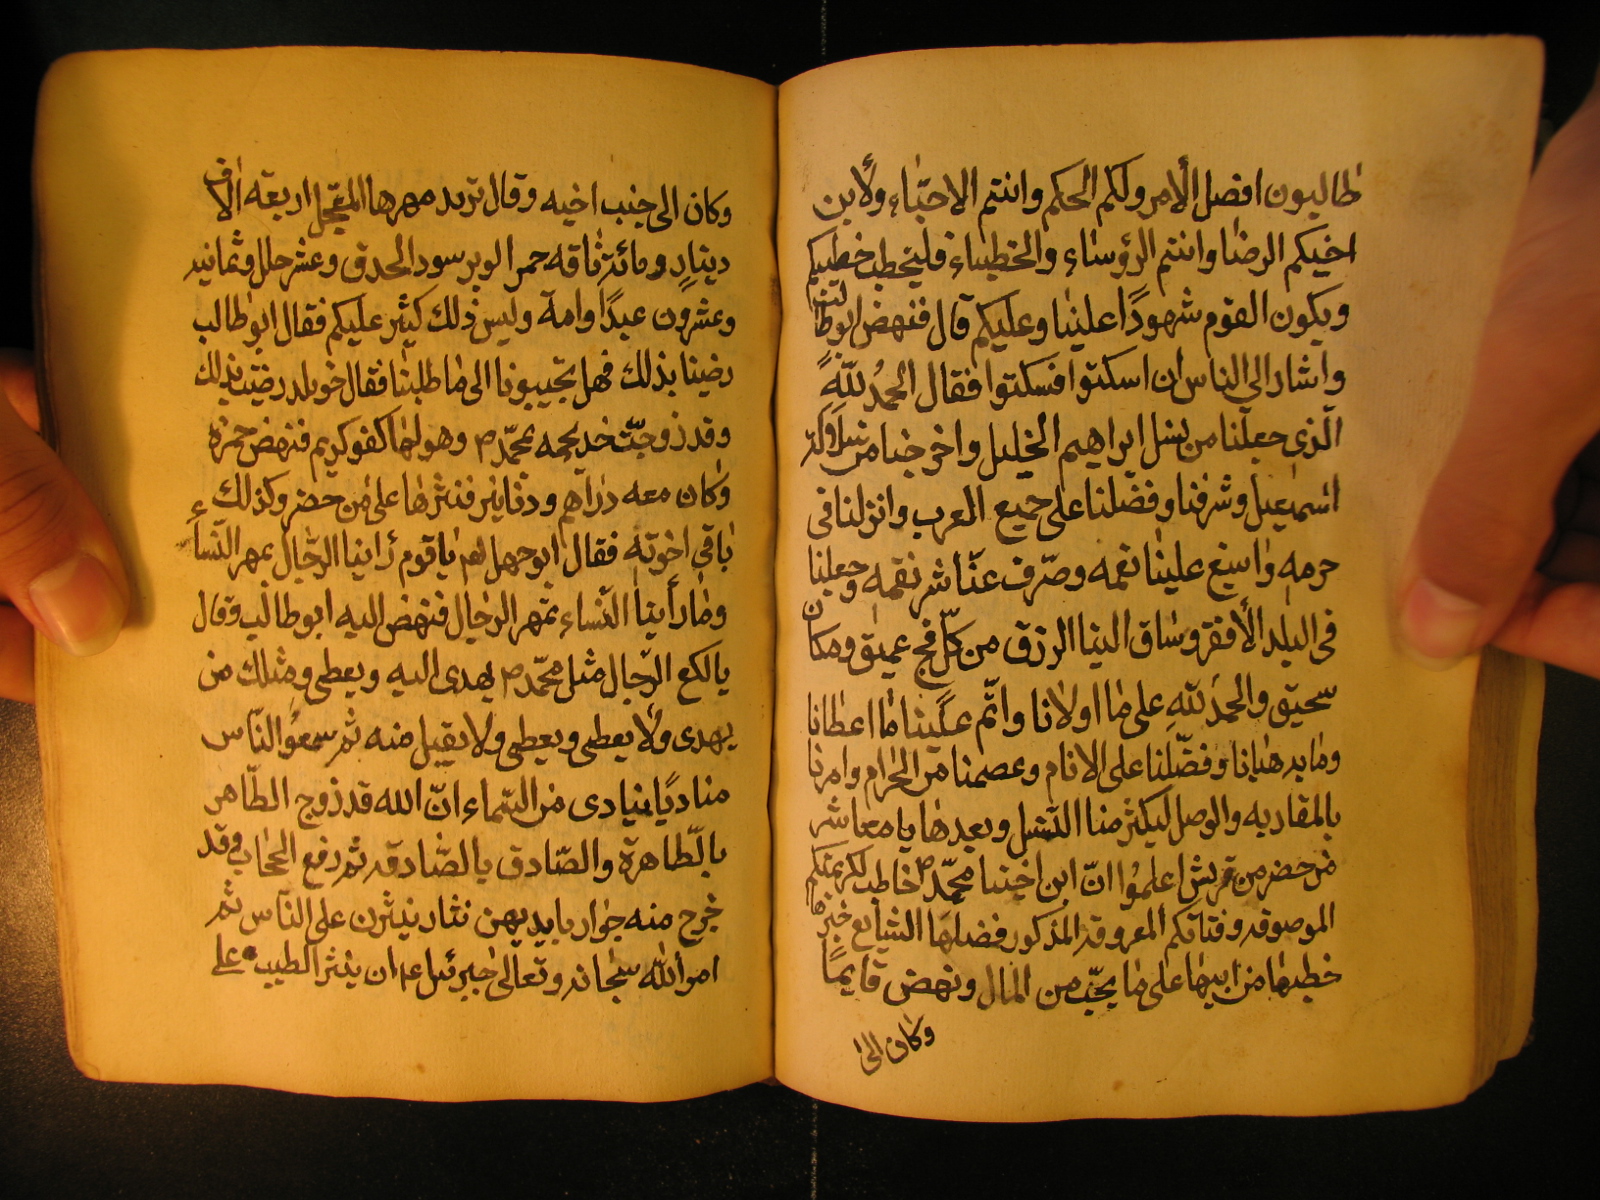 طالبون افضل الأمر ولكم الحكم وانتم الاحبّاء ولأبن
اخيكم الرضا وانتم الرؤساء والخطباء فليخطب خطيبكم
ويكون القوم شهودًا علينا وعليكم قال فنهض ابو طالب
واشار الى الناس ان اسكتوا فسكتوا فقال الحمدُ للّهِ
الّذي جعلنا من نسل ابراهيم الخليل واخرجنا من
اسمعيل وشرفنا وفضّلنا على جميع العرب وانزلنا في
حرمهِ واسبغ علينا نعمه وصرّف عنّا شر نقمهِ وجعلنا
في البلد الأفقر وساق الينا الرزق من كلّ فجّ عميق ومكان
سحيق والحمد للّهِ على ما اولانا وانّم علينا ما اعطانا
وما به هدانا وفضّلنا على الانام وعصمنا من الحرام وامرنا
بالمقاربه والوصل ليكثر منا النّسل وبعد هذا يا معاشر
من حضر من قريش اعلموُا انّ ابن اخينا محمّد ص خاطب كريمتكم
الموصوفه وفتاتكم المعروفه المذكور فضلها الشايع خبرها
خطبها من ابيها على ما يحبّ من المال ونهض قايمًا
وكان الى
وكان الى جنب اخيه وقال تريد مهرها المعجّل اربعة الاف
دينارٍ ومائة ناقه حمر الوبر سود الحدق وعشر حلل وثمانيه
وعشرون عبدًا وامة وليس ذلك كثير عليكم فقال ابو طالب
رضينا بذلك فهل تجيبونا الى ما طلبنا فقال خويلد رضيت بذلك
وقد زوجّت خديجه بمحمّد ص وهو لها كفو كريم فنهض حمزة
وكان معه دراهم ودنانير فنثرها على من حضر وكذلك
باقي اخوته فقال ابو جهل لهم يا قوم رأينا الرجّال بمهر النّساء
وما رأينا النّساء تمهر الرجال فنهض اليه ابو طالب وقال
يا لكع الرّجال مثل محمّد ص يهدى اليه ويعطى ومثلك من
يهدى ولأ يعطى ويعطى ولا يقبل منه ثم سمعوُا النّاس
مناديًا ينادي من السّماء انّ الله قد زوج الطّاهر
بالّطاهرة والصّادق بالصّادقه ثم رفع الحجاب وقد
خرج منه جوار بايديهن نثار ينثرن على النّاس ثم
امر الله سبحانه وتعالى جبرئيل ع ان ينثر الطيب على